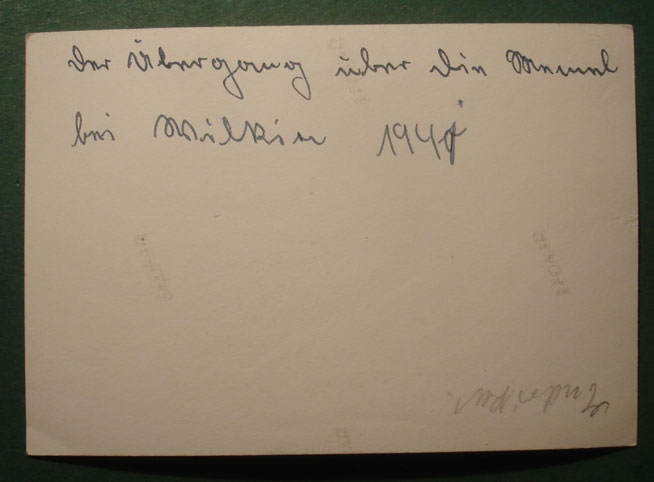 Der Übergang über die Memel
bei Wilkien